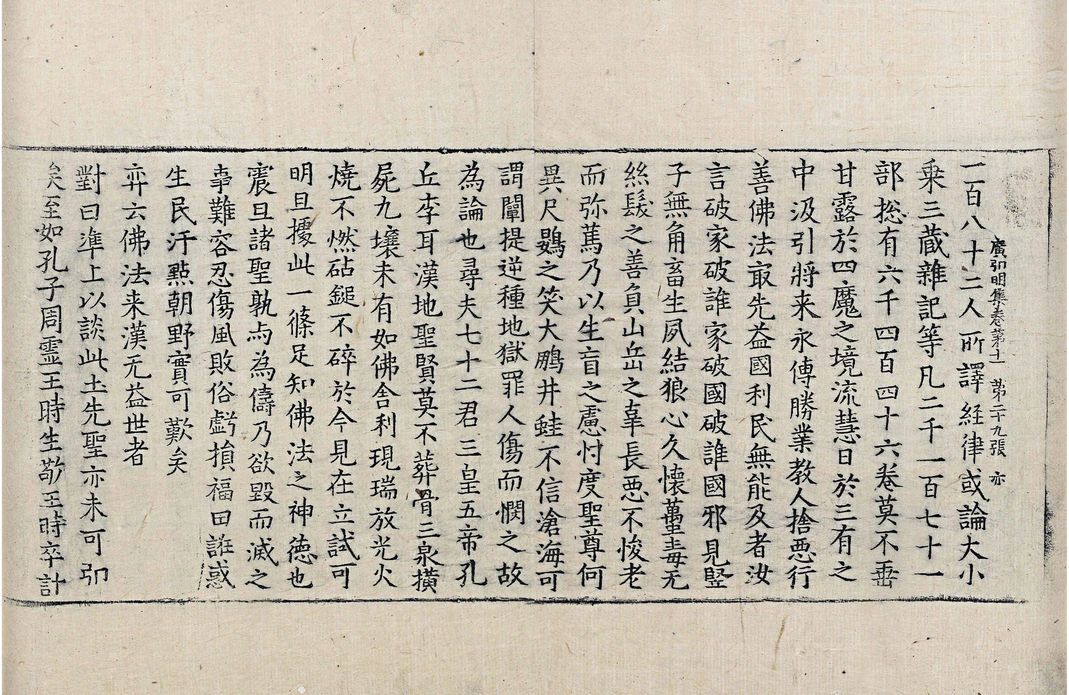 廣弘明集卷第十一 第二十九張 亦
二百八十二人所譯経律或論大小
乗三蔵雜記等凡二千一百七十一
部惣有六千四百四十六卷莫不垂
甘露於四魔之境流慧日於三有之
中汲引將来永傳勝業教人捨惡行
善佛法㝡先益國利民無能及者汝
言破家破誰家破國破誰國邪見竪
子無角畜生夙結狼心久懷蠆毒无
絲髮之善負山岳之辜長惡不悛老
而弥篤乃以生盲之慮忖度聖尊何
異尺鷃之笑大鵬井蛙不信滄海可
謂闡提逆種地獄罪人傷而憫之故
為論也尋夫七十二君三皇五帝孔
丘李耳漢地聖賢莫不葬骨三泉横
屍九壤未有如佛舎利現瑞放光火
燒不燃砧鎚不碎於今見在立試可
明且擾此一條足知佛法之神德也
震旦諸聖孰与為儔乃欲毀而滅之
事難容忍傷風敗俗虧損福田誑惑
生民汙黷朝野實可歎矣
弈云佛法来漢无益世者
對曰準上以談此土先聖亦未可弘
矣至如孔子周靈王時生敬王時卒計